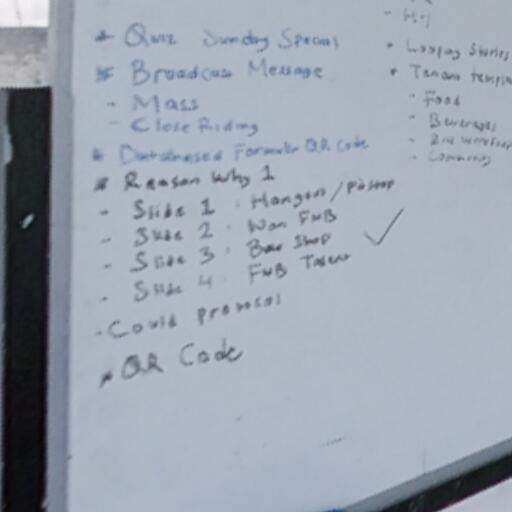 * Quiz Sunday Special
* Broadcast Message
- Mass
- Close Riding
* Formulir QR Code
* Reason Why 1
- Slide 1 : Hangout / Pitstop
- Slide 2 : Won FnB
- Slide 3 : Bar Shop
- Slide 4 : FnB Talent
- Could proposal
* QR Code
* Looping Stories
* Tenant templa
- Food
- Beverages
- Community